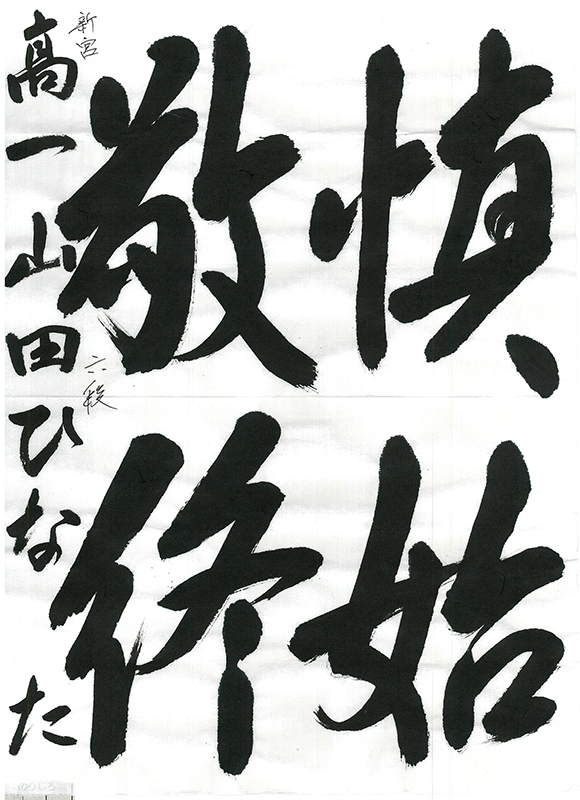 慎始
敬終
新宮
六段
高一山田ひなた